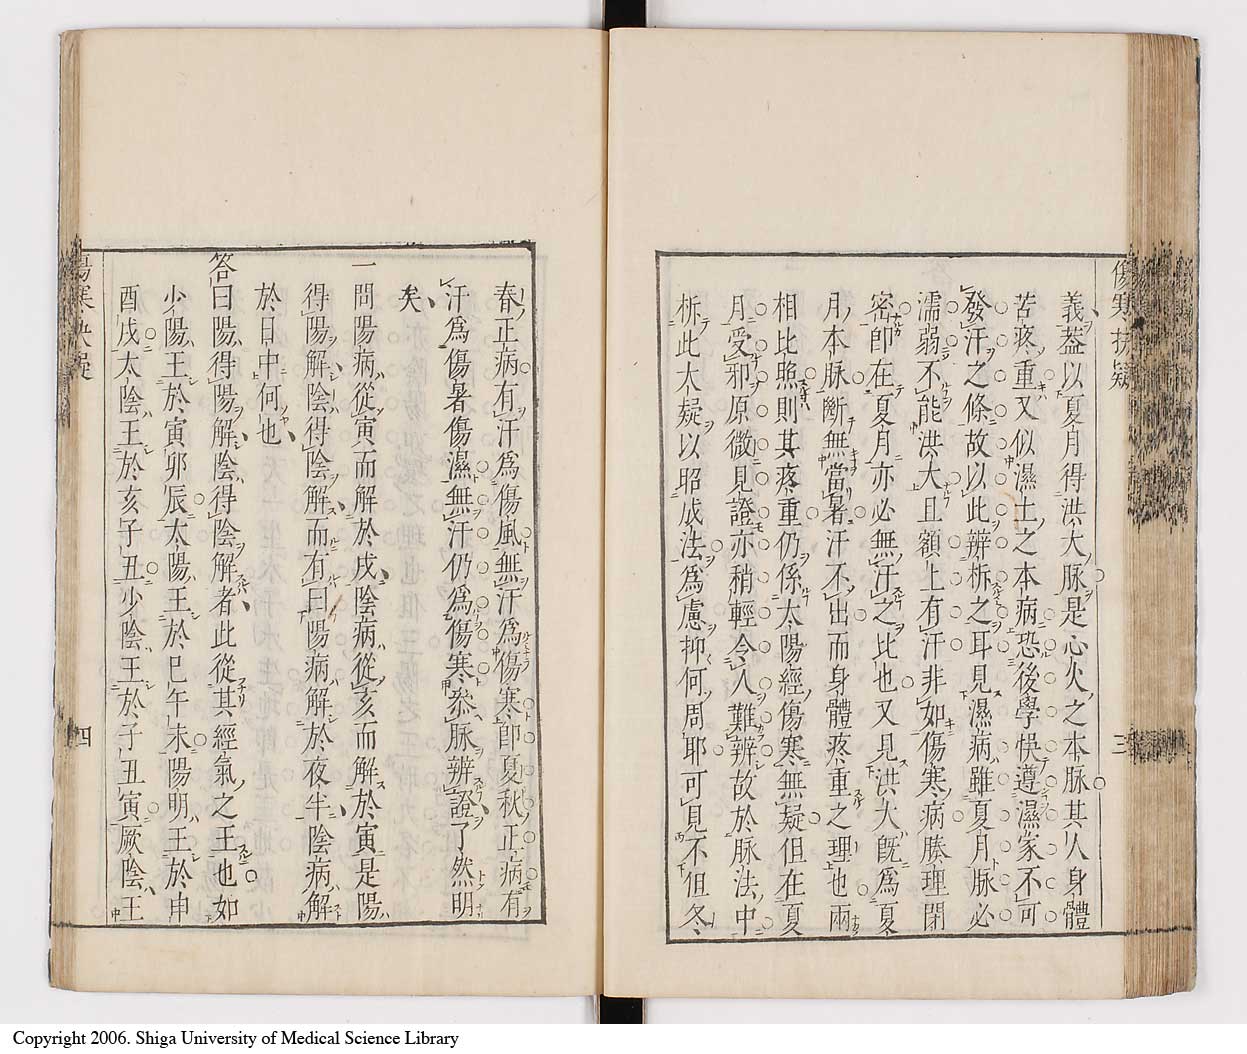 傷寒抉疑
三
義蓋以夏月得洪大脈是心火之本脈其人身體
苦疼重又似濕土之本病恐後學快遵濕家不可
發汗之條故以此辨析之耳見濕病雖夏月脈必
濡弱不能洪大且額上有汗非如傷寒病腠理閉
密即在夏月亦必無汗之比也又見洪大既為夏
月本脈斷無當暑汗不出而身體疼重之理也兩
相比照則其疼重仍係太陽經傷寒無疑但在夏
月受邪原微見證亦稍輕令人難辨故於脈法中
析此大疑以昭成法為慮抑何周耶可見不但冬
春正病有汗為傷風無汗為傷寒即夏秋正病有
汗為傷暑傷濕無汗仍為傷寒叅脈辨證了然明
矣
一問陽病從寅而解於戌陰病從亥而解於寅是陽
得陽解陰得陰解而有曰陽病解於夜半陰病解
於日中何也
答曰陽得陽解陰得陰解者此從其經氣之王也如
少陽王於寅卯辰太陽王於巳午未陽明王於申
酉戌太陰王於亥子丑少陰王於子丑寅厥陰王
傷寒抉疑
四
Copyright 2006. Shiga University of Medical Science Library